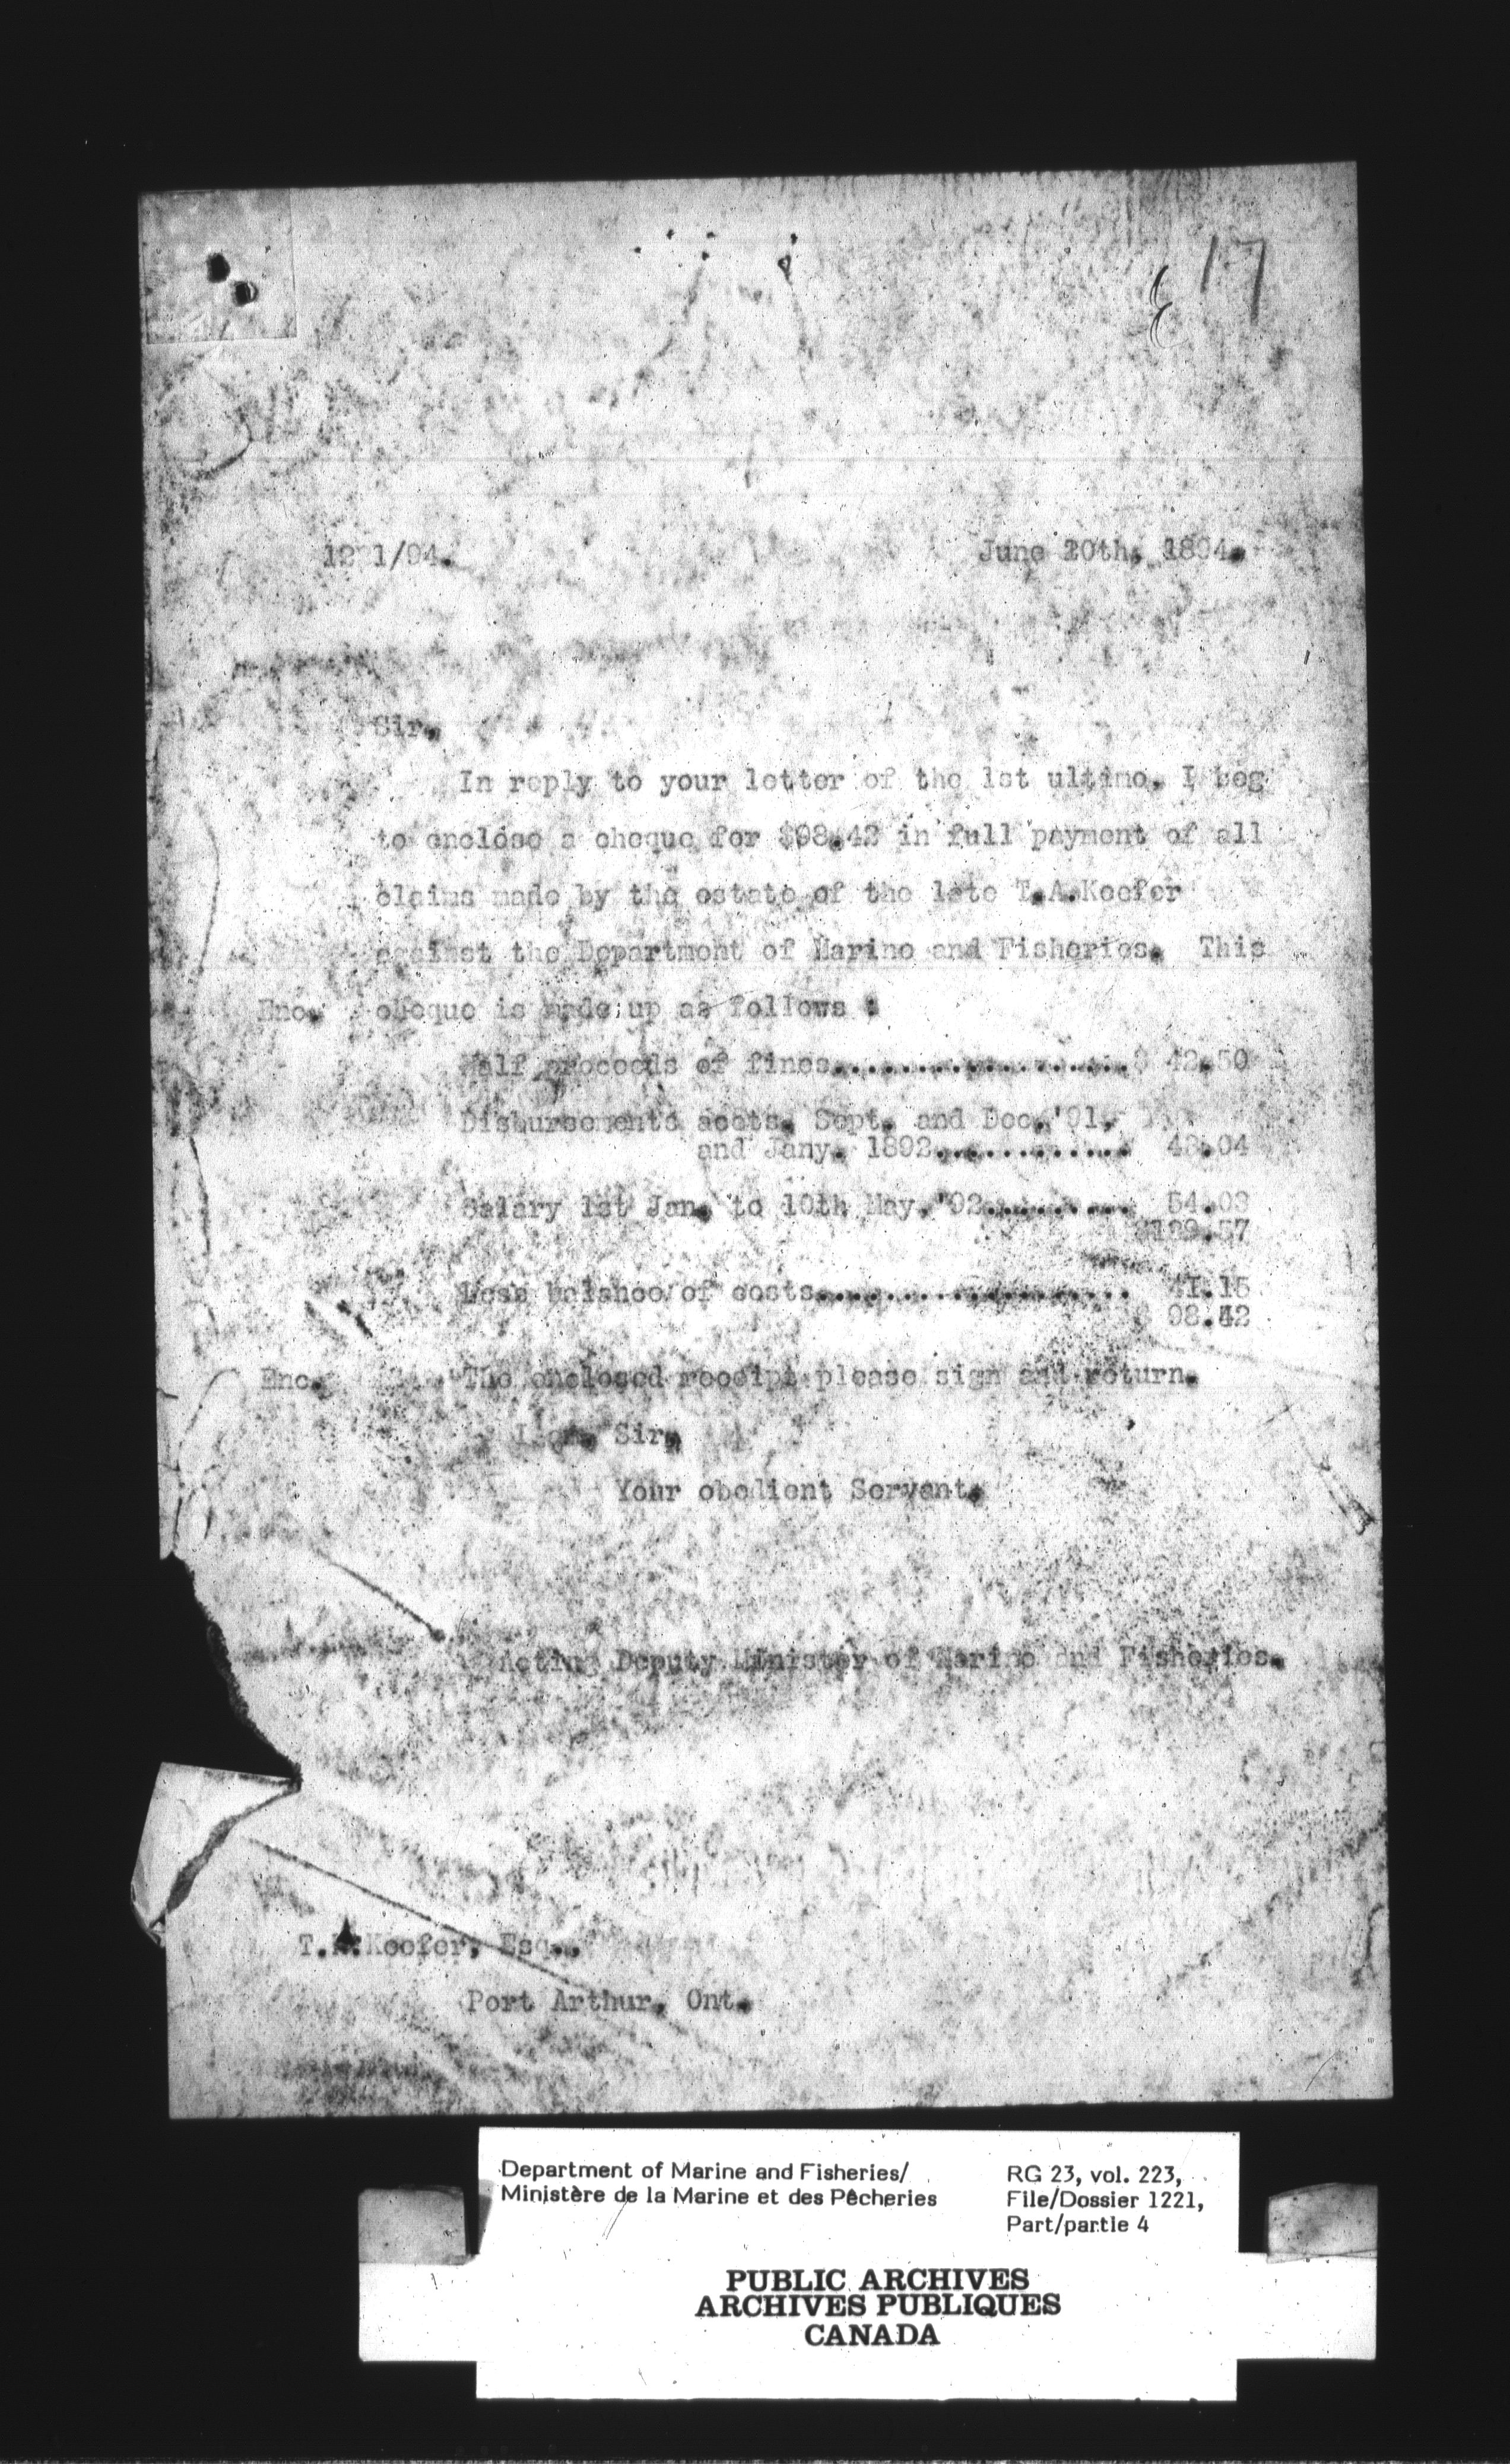 17
12 1/94.
June 20th, 1894.
Sir,
In reply to your letter of the 1st ultimo, I beg
to enclose a cheque for $98.42 in full payment of all
claims made by the estate of the late T.A.Keefer
against the Department of Marine and Fisheries. This
Enc. cheque is made up as follows :
Half proceeds of fines........................$ 42.50
Disbursements accts. Sept. and Dec.'91,
and Jany. 1892............... 43.04
Salary 1st Jan. to 10th May, '92........... 54.03
$139.57
Less balance of costs........................ 41.15
$ 98.42
Enc. The enclosed receipt please sign and return.
I am, Sir,
Your obedient Servant,
Acting Deputy Minister of Marine and Fisheries.
T. Keefer, Esq.,
Port Arthur, Ont.
Department of Marine and Fisheries/
Ministère de la Marine et des Pêcheries
RG 23, vol. 223,
File/Dossier 1221,
Part/partie 4
PUBLIC ARCHIVES
ARCHIVES PUBLIQUES
CANADA